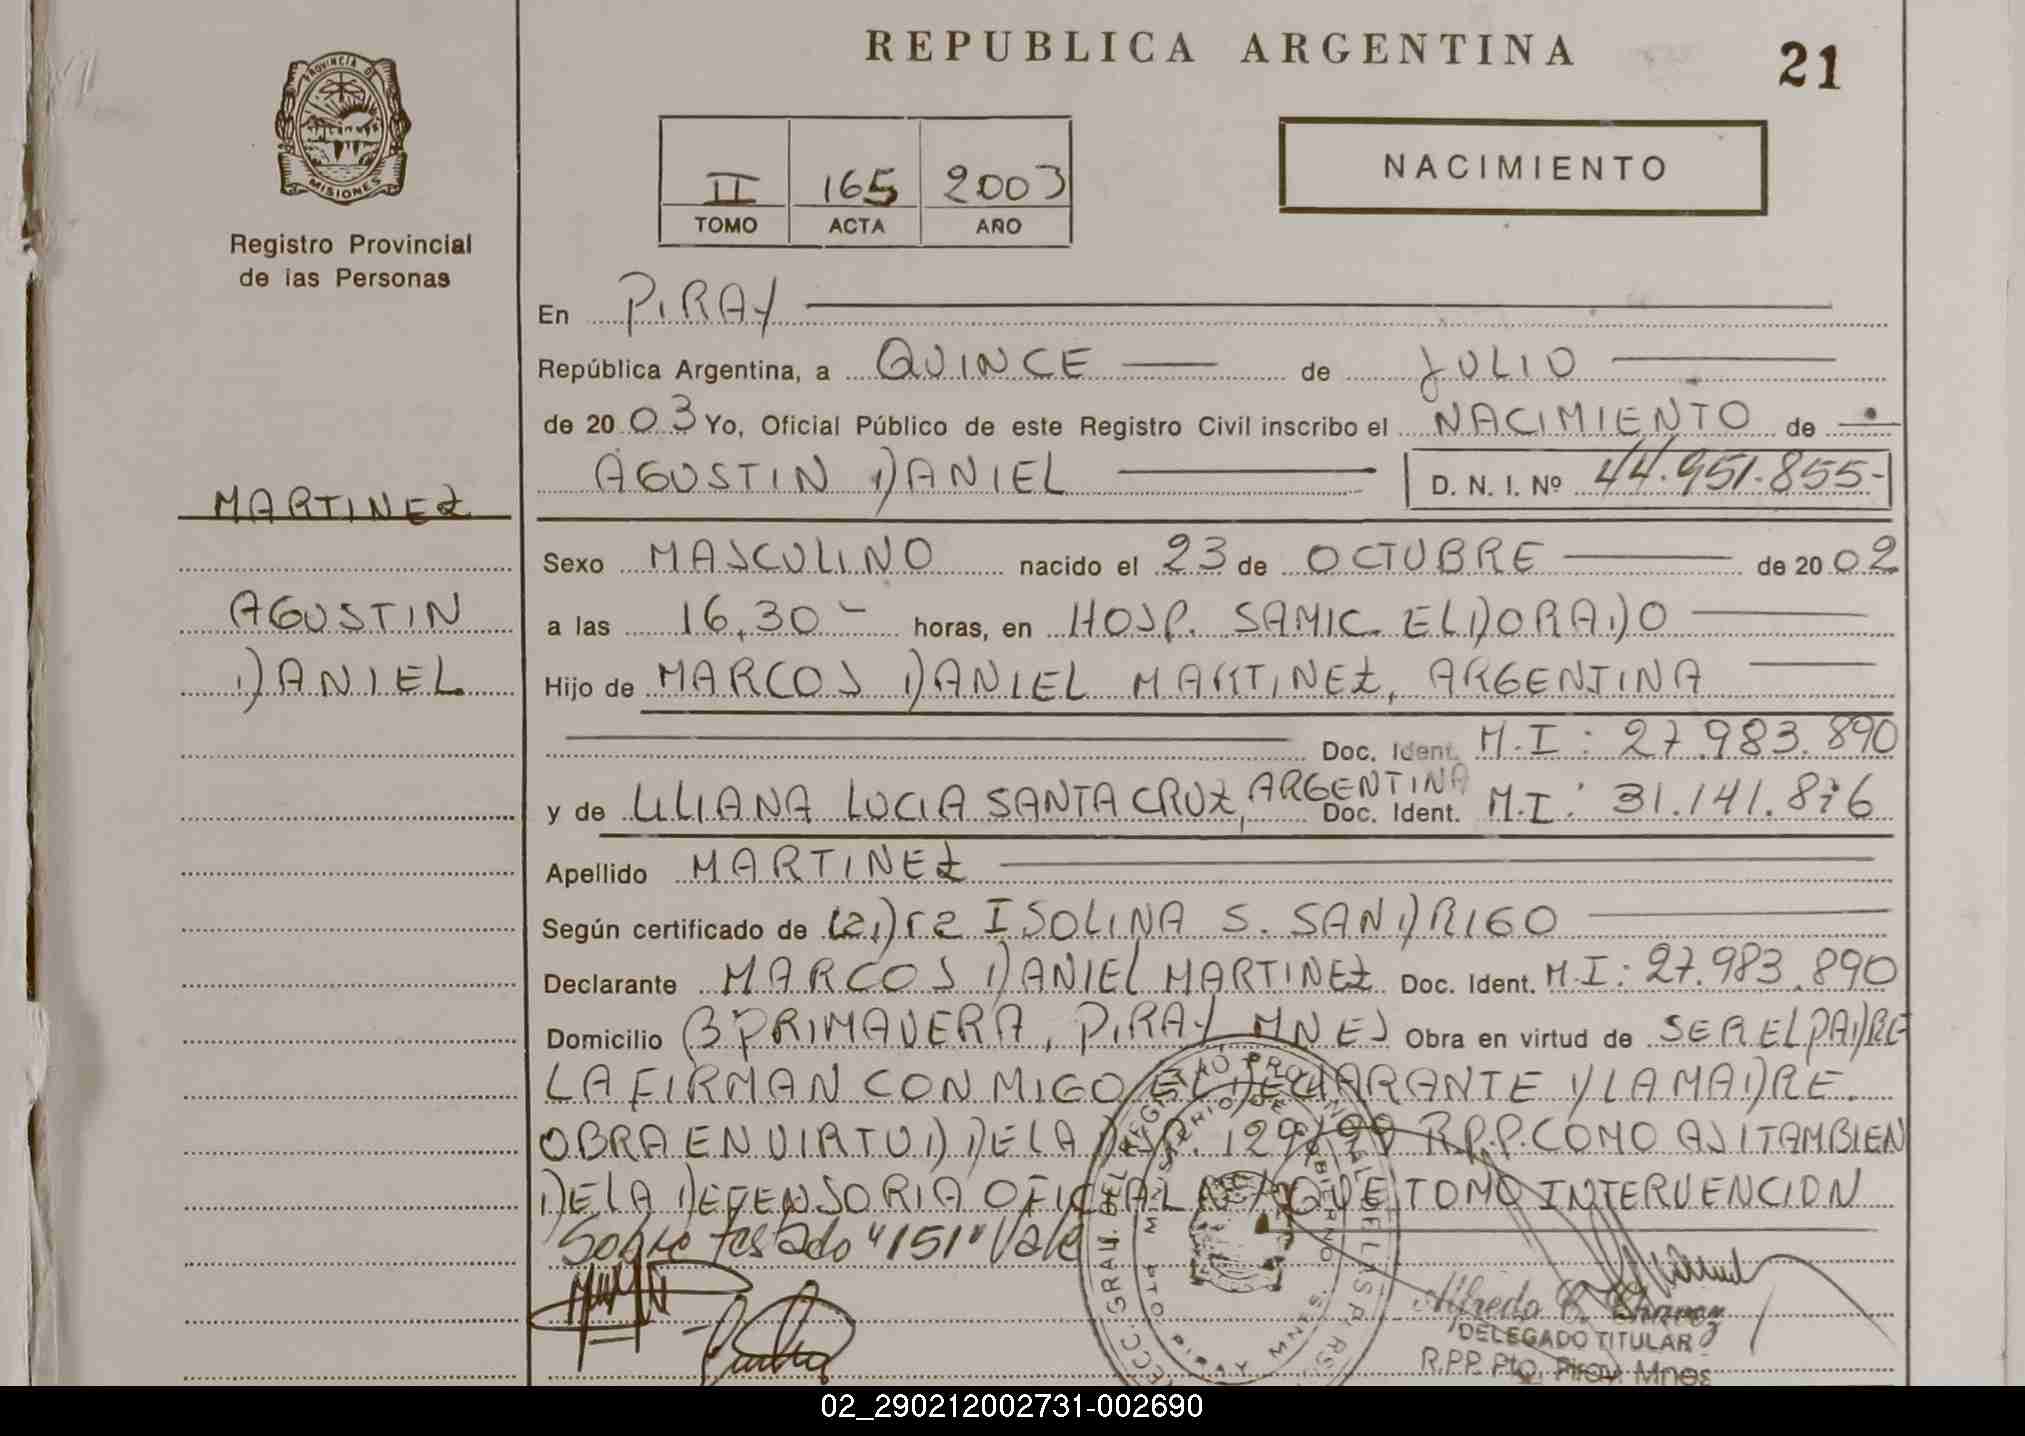 REPUBLICA ARGENTINA
21
PROVINCIA D
MISIONES
Registro Provincial
de las Personas
II 165 2003
TOMO ACTA AÑO
NACIMIENTO
En PIRAY
República Argentina, a QUINCE de JULIO
de 2003 Yo, Oficial Público de este Registro Civil inscribo el NACIMIENTO de
AGUSTIN DANIEL D. N. I. Nº 44.951.855-
MARTINEZ
AGUSTIN
DANIEL
Sexo MASCULINO nacido el 23 de OCTUBRE de 2002
a las 16,30 horas, en HOSP. SAMIC. ELDORADO
Hijo de MARCOS DANIEL MARTINEZ, ARGENTINA
Doc. Ident. M.I: 27.983.890
y de LILIANA LUCIA SANTA CRUZ, ARGENTINA Doc. Ident. M.I: 31.141.876
Apellido MARTINEZ
Según certificado de ISOLINA S. SANDRIGO
Declarante MARCOS DANIEL MARTINEZ Doc. Ident. M.I: 27.983.890
Domicilio Bº PRIMAVERA, PIRAY, MNES Obra en virtud de SER EL PADRE
LA FIRMAN CONMIGO EL DECLARANTE Y LA MADRE.
OBRA EN VIRTUD DE LA 129/99 R.P.P. COMO ASI TAMBIEN
DE LA DEFENSORIA OFICIAL QUE TOMO INTERVENCION
Sobre testado "151" Vale
Alfredo C.
DELEGADO TITULAR
R.P.P. Pto. Piray. Mnes
02_290212002731-002690